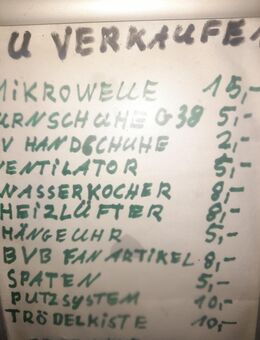 U VERKAUFEN
MIKROWELLE 15,-
URNSCHUHE G38 5,-
V HANDSCHUHE 2,-
VENTILATOR 5,-
WASSERKOCHER 8,-
HEIZLÜFTER 8,-
HÄNGEUHR 5,-
BVB FANARTIKEL 8,-
SPATEN 5,-
PUTZSYSTEM 10,-
TRÖDELKISTE 10,-